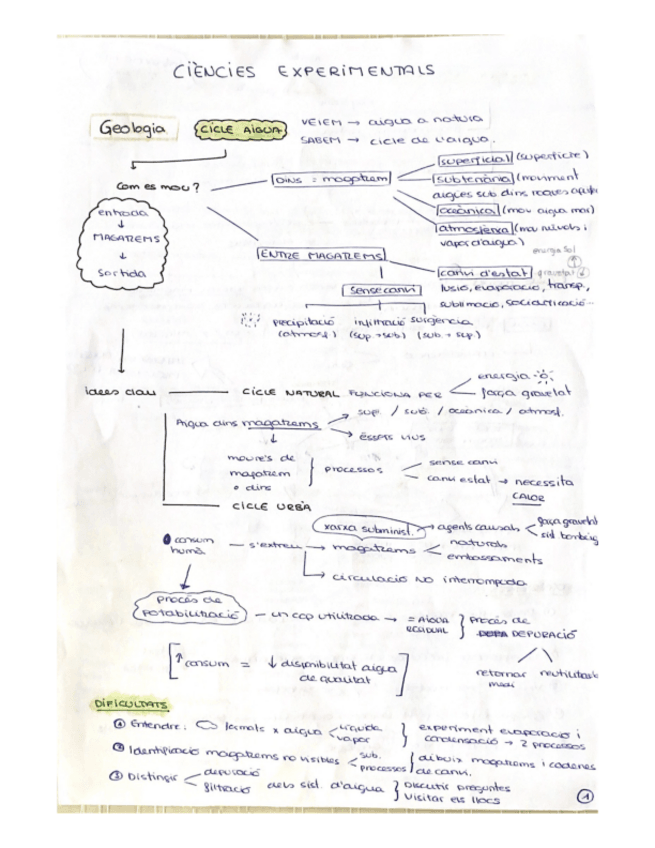 CIÈNCIES EXPERIMENTALS
Geologia
CICLE AIGUA
VEIEM → aigua a natura
SABEM → cicle de l'aigua.
Com es mou?
DINS = magatzem
superficial (superficie)
subterrània (moviment
aigües sub dins roques
oceànica (mov aigua mar)
atmosfèrica (mov núvols i
vapor d'aigua)
entrada
↓
MAGATZEMS
↓
Sortida
ENTRE MAGATZEMS
energia sol
canvi d'estat
gravetat
fusió, evaporació, transp.,
sublimació, solidificació...
sense canvi
precipitació infiltració surgència
(atmosf.) (sup→sub) (sub→sup.)
idees clau
CICLE NATURAL FUNCIONA PER
energia
força gravetat
Aigua dins magatzems
sup. / sub. / oceànica / atmosf.
éssers vius
moure's de
magatzem
o dins
} processos
sense canvi
canvi estat → necessita
CALOR
CICLE URBÀ
xarxa subminist.
→ agents causals
força gravetat
sist bombeig
consum
humà
— s'extreu → magatzems
naturals
embassaments
circulació NO interrompuda
procés de
potabilització
— un cop utilitzada → = AIGUA
RESIDUAL
} procés de
DEPURACIÓ
retornar
medi
reutilitzar
[↑ consum = ↓ disponibilitat aigua
de qualitat]
DIFICULTATS
① Entendre: formals x aigua
líquida
vapor
} experiment evaporació i
condensació → 2 processos
② Identificació magatzems no visibles
sub.
processos
} dibuix magatzems i cadenes
de canvi.
③ Distingir
depuració
filtració
dels sist. d'aigua
} Discutir preguntes
Visitar els llocs
①